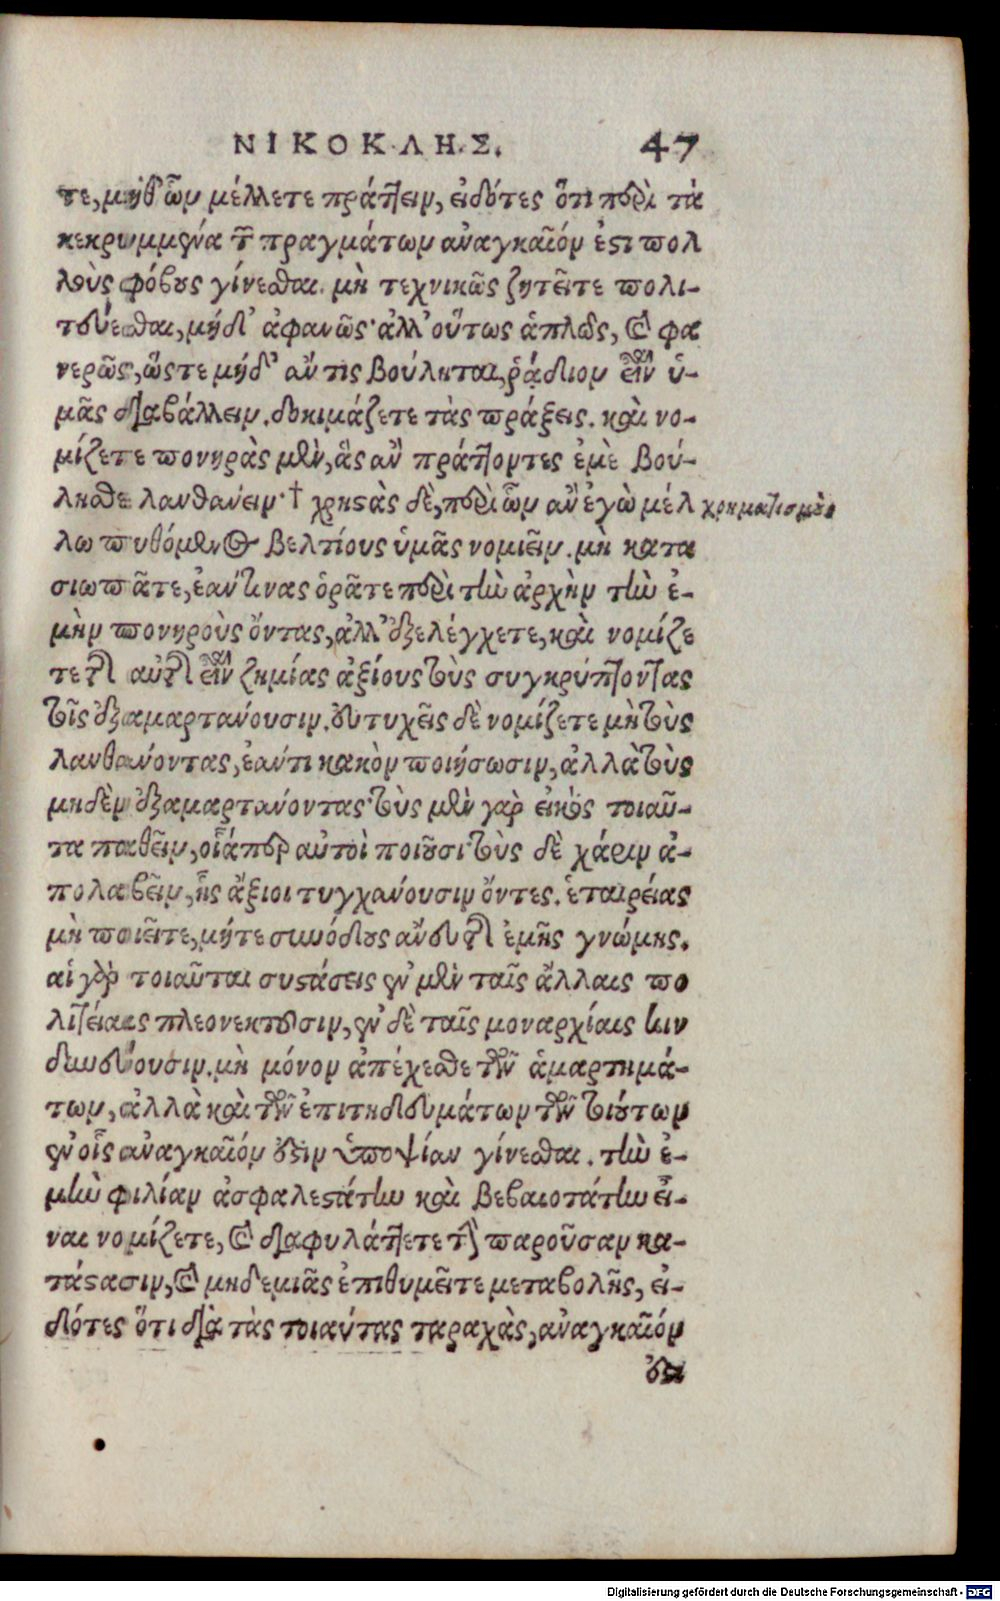 ΝΙΚΟΚΛΗΣ. 47
τε, μήθ' ὧν μέλλετε πράττειν, εἰδότες ὅτι περὶ τὰ
κεκρυμμένα τῶν πραγμάτων ἀναγκαῖόν ἐστι πολ
λοὺς φόβους γίνεσθαι. μὴ τεχνικῶς ζητεῖτε πολι-
τεύεσθαι, μήδ' ἀφανῶς· ἀλλ' οὕτως ἁπλῶς, καὶ φα
νερῶς, ὥστε μήδ' ἄν τις βούληται, ῥᾴδιον εἶναι ὑ-
μᾶς διαβάλλειν. δοκιμάζετε τὰς πράξεις. καὶ νο-
μίζετε πονηρὰς μὲν, ἃς ἂν πράττοντες ἐμὲ βού-
λησθε λανθάνειν· † χρηστὰς δὲ, περὶ ὧν ἂν ἐγὼ μέλ
χρηματισμὸς
λω πυθόμενος βελτίους ὑμᾶς νομιεῖν. μὴ κατα
σιωπᾶτε, ἐάν τινας ὁρᾶτε περὶ τὴν ἀρχὴν τὴν ἐ-
μὴν πονηροὺς ὄντας, ἀλλ' ἐξελέγχετε, καὶ νομίζε
τε τῆς αὐτῆς εἶναι ζημίας ἀξίους τοὺς συγκρύπτοντας
τοῖς ἐξαμαρτάνουσιν. εὐτυχεῖς δὲ νομίζετε μὴ τοὺς
λανθάνοντας, ἐάν τι κακὸν ποιήσωσιν, ἀλλὰ τοὺς
μηδὲν ἐξαμαρτάνοντας· τοὺς μὲν γὰρ εἰκὸς τοιαῦ-
τα παθεῖν, οἷά περ αὐτοὶ ποιοῦσι· τοὺς δὲ χάριν ἀ-
πολαβεῖν, ἧς ἄξιοι τυγχάνουσιν ὄντες. ἑταιρείας
μὴ ποιεῖτε, μήτε συνόδους ἄνευ τῆς ἐμῆς γνώμης.
αἱ γὰρ τοιαῦται συστάσεις ἐν μὲν ταῖς ἄλλαις πο
λιτείαις πλεονεκτοῦσιν, ἐν δὲ ταῖς μοναρχίαις κιν
δυνεύουσιν. μὴ μόνον ἀπέχεσθε τῶν ἁμαρτημά-
των, ἀλλὰ καὶ τῶν ἐπιτηδευμάτων τῶν τοιούτων
ἐν οἷς ἀναγκαῖόν ἐστιν ὑποψίαν γίνεσθαι. τὴν ἐ-
μὴν φιλίαν ἀσφαλεστάτην καὶ βεβαιοτάτην εἶ-
ναι νομίζετε, καὶ διαφυλάττετε τὴν παροῦσαν κα-
τάστασιν, καὶ μηδεμιᾶς ἐπιθυμεῖτε μεταβολῆς, εἰ-
δότες ὅτι διὰ τὰς τοιαύτας ταραχὰς, ἀναγκαῖόν
ἐστι
Digitalisierung gefördert durch die Deutsche Forschungsgemeinschaft - DFG